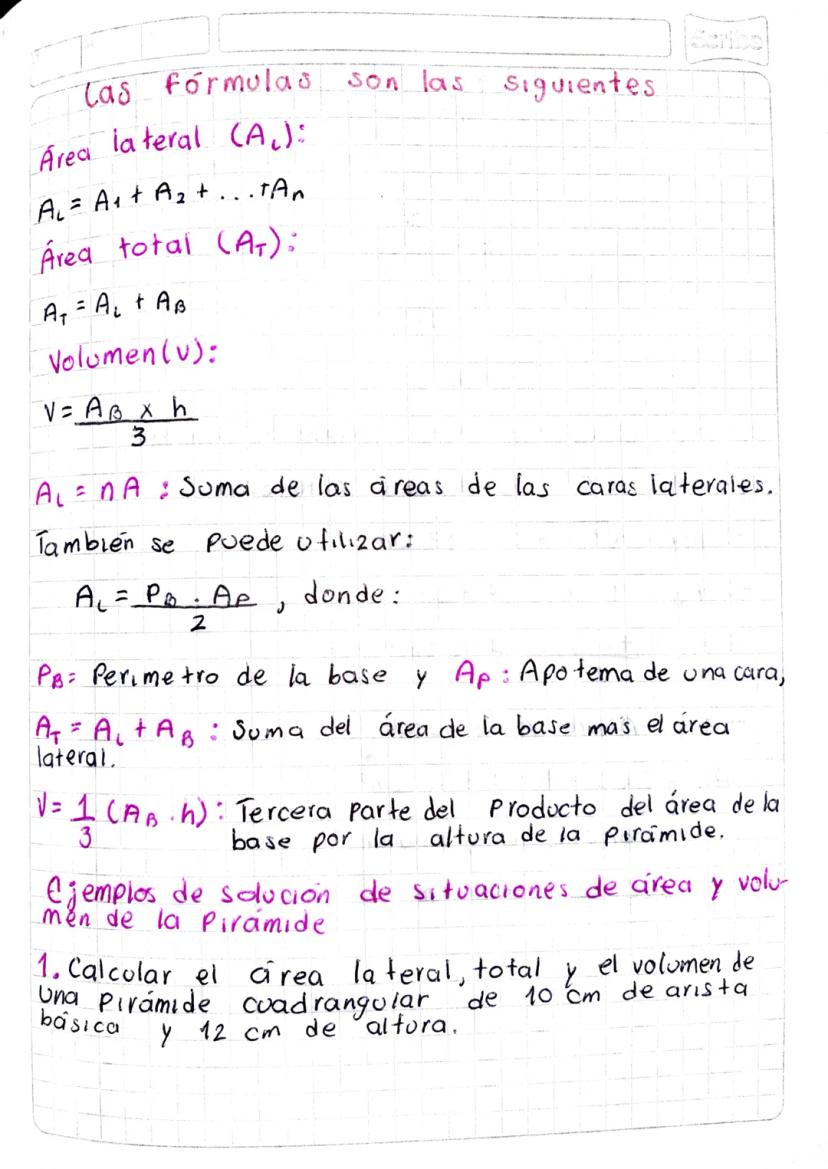 Scribe
Las fórmulas son las siguientes
Área lateral (AL):
AL = A1 + A2 + ... + An
Área total (AT):
AT = AL + AB
Volumen (V):
V = AB x h
3
AL = nA : Suma de las áreas de las caras laterales.
También se puede utilizar:
AL = PB . AP , donde:
2
PB: Perimetro de la base y AP: Apotema de una cara,
AT = AL + AB : Suma del área de la base más el área
lateral.
V = 1 (AB . h): Tercera parte del producto del área de la
3 base por la altura de la pirámide.
Ejemplos de solución de situaciones de área y volu-
men de la pirámide
1. Calcular el área lateral, total y el volumen de
una pirámide cuadrangular de 10 cm de arista
básica y 12 cm de altura.